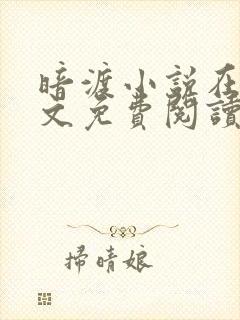 暗渡小说在
文免費閱讀
掃晴娘